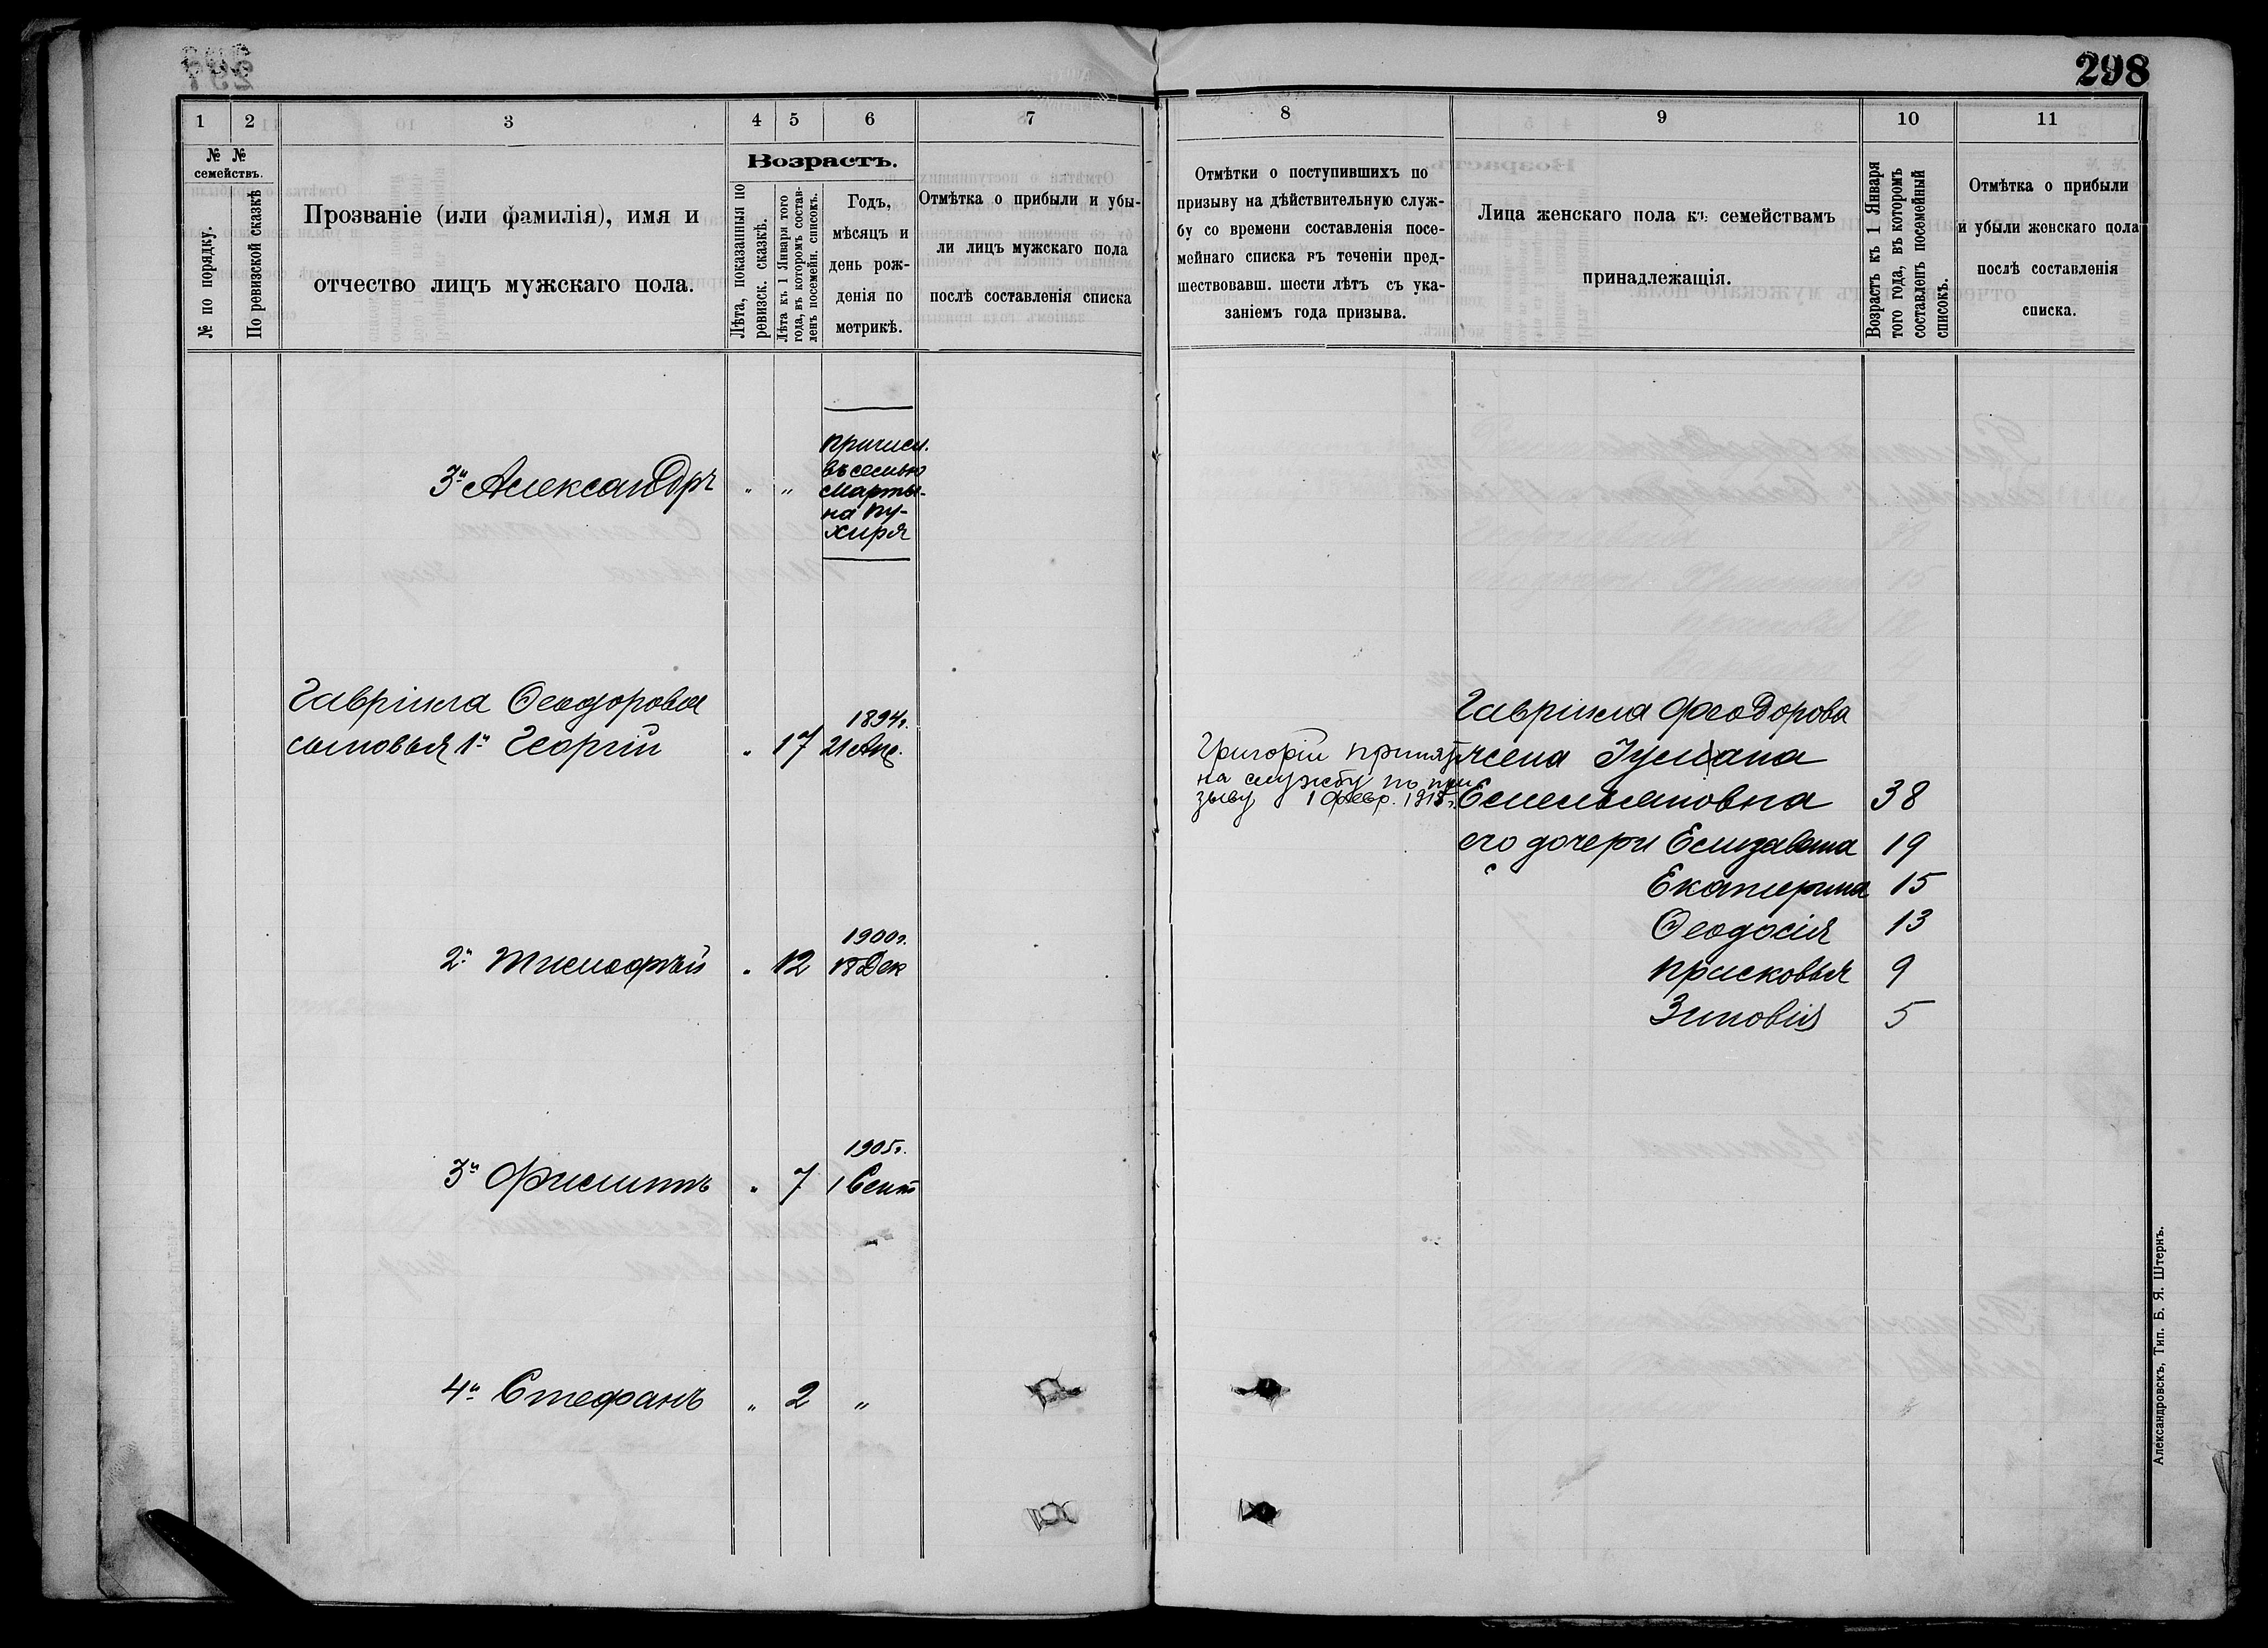 298
1 2 3 4 5 6 7
№ № семействъ.
№ по порядку.
По ревизской сказкѣ
Прозваніе (или фамилія), имя и
отчество лицъ мужскаго пола.
Возрастъ.
Лѣта, показанныя по
ревизск. сказкѣ.
Лѣта къ 1 Января того
года, въ которомъ состав-
ленъ посемейн. списокъ.
Годъ,
мѣсяцъ и
день рож-
денія по
метрикѣ.
Отмѣтка о прибыли и убы-
ли лицъ мужскаго пола
послѣ составленія списка
3й Александръ " "
Причисл.
въ семью
Марты-
на Пу-
хиря
Гавріила Ѳеодорова
1894г.
сыновья 1й Георгій " 17 21 Апр.
1900г.
2й Тимофѣй " 12 18 Дек
1905г.
3й Филиппъ " 7 1 Сент
4й Стефанъ " 2 "
8 9 10 11
Отмѣтки о поступившихъ по
призыву на дѣйствительную служ-
бу со времени составленія посе-
мейнаго списка въ теченіи пред-
шествовавш. шести лѣтъ съ ука-
заніемъ года призыва.
Лица женскаго пола къ семействамъ
принадлежащія.
Возрастъ къ 1 Января
того года, въ которомъ
составленъ посемейный
списокъ.
Отмѣтка о прибыли
и убыли женскаго пола
послѣ составленія
списка.
Григорій принятъ
на службу по при
зыву 1 февр. 1915г.
Гавріила Феодорова
жена Іуліана
Емельяновна 38
его дочери Елизавета 19
Екатерина 15
Ѳеодосія 13
Прасковья 9
Зиновія 5
Александровскъ, Тип. Б. Я. Штернъ.